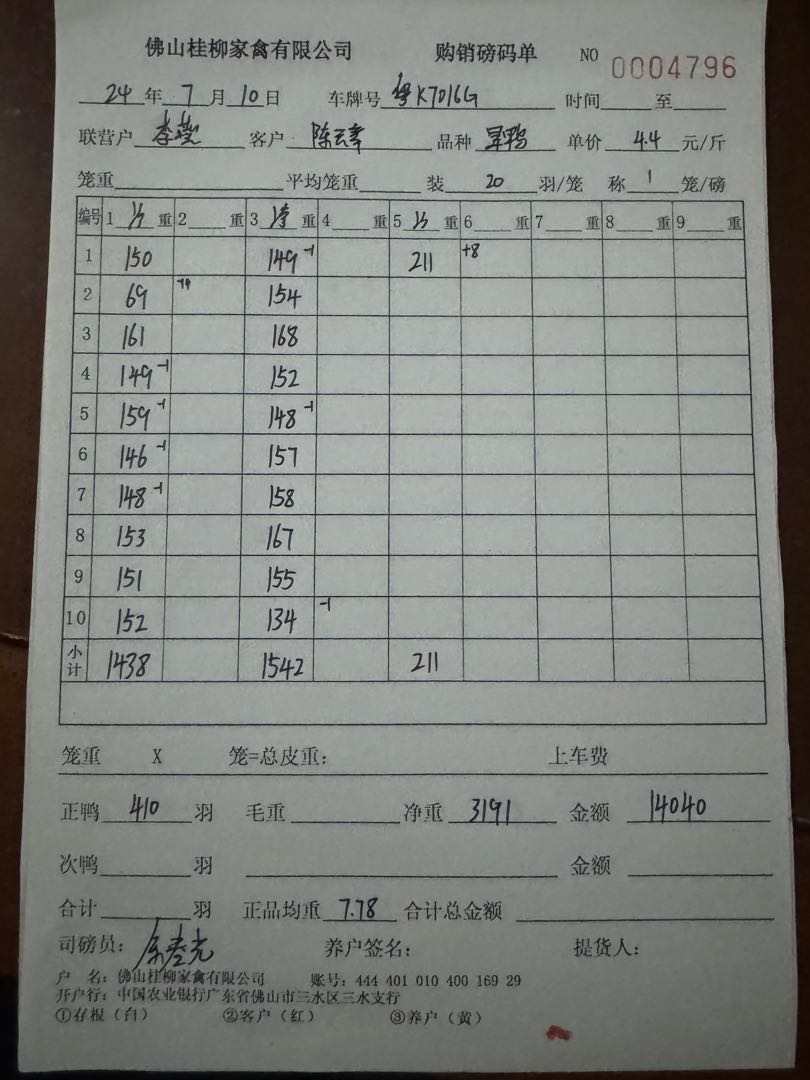 佛山桂柳家禽有限公司 购销磅码单 NO 0004796
24 年 7 月 10 日 车牌号 粤K7016G 时间 至
联营户 李 客户 陈云 品种 鸭 单价 4.4 元/斤
笼重 平均笼重 装 20 羽/笼 称 1 笼/磅
编号 1 重 2 重 3 重 4 重 5 重 6 重 7 重 8 重 9 重
1 150 149 -1 211 +8
2 69 154
3 161 168
4 149 -1 152
5 159 -1 148 -1
6 146 -1 157
7 148 -1 158
8 153 167
9 151 155
10 152 134 -1
小计 1438 1542 211
笼重 X 笼=总皮重: 上车费
正鸭 410 羽 毛重 净重 3191 金额 14040
次鸭 羽 金额
合计 羽 正品均重 7.78 合计总金额
司磅员: 养户签名: 提货人:
户 名: 佛山桂柳家禽有限公司 账号: 444 401 010 400 169 29
开户行: 中国农业银行广东省佛山市三水区三水支行
①存根(白) ②客户(红) ③养户(黄)